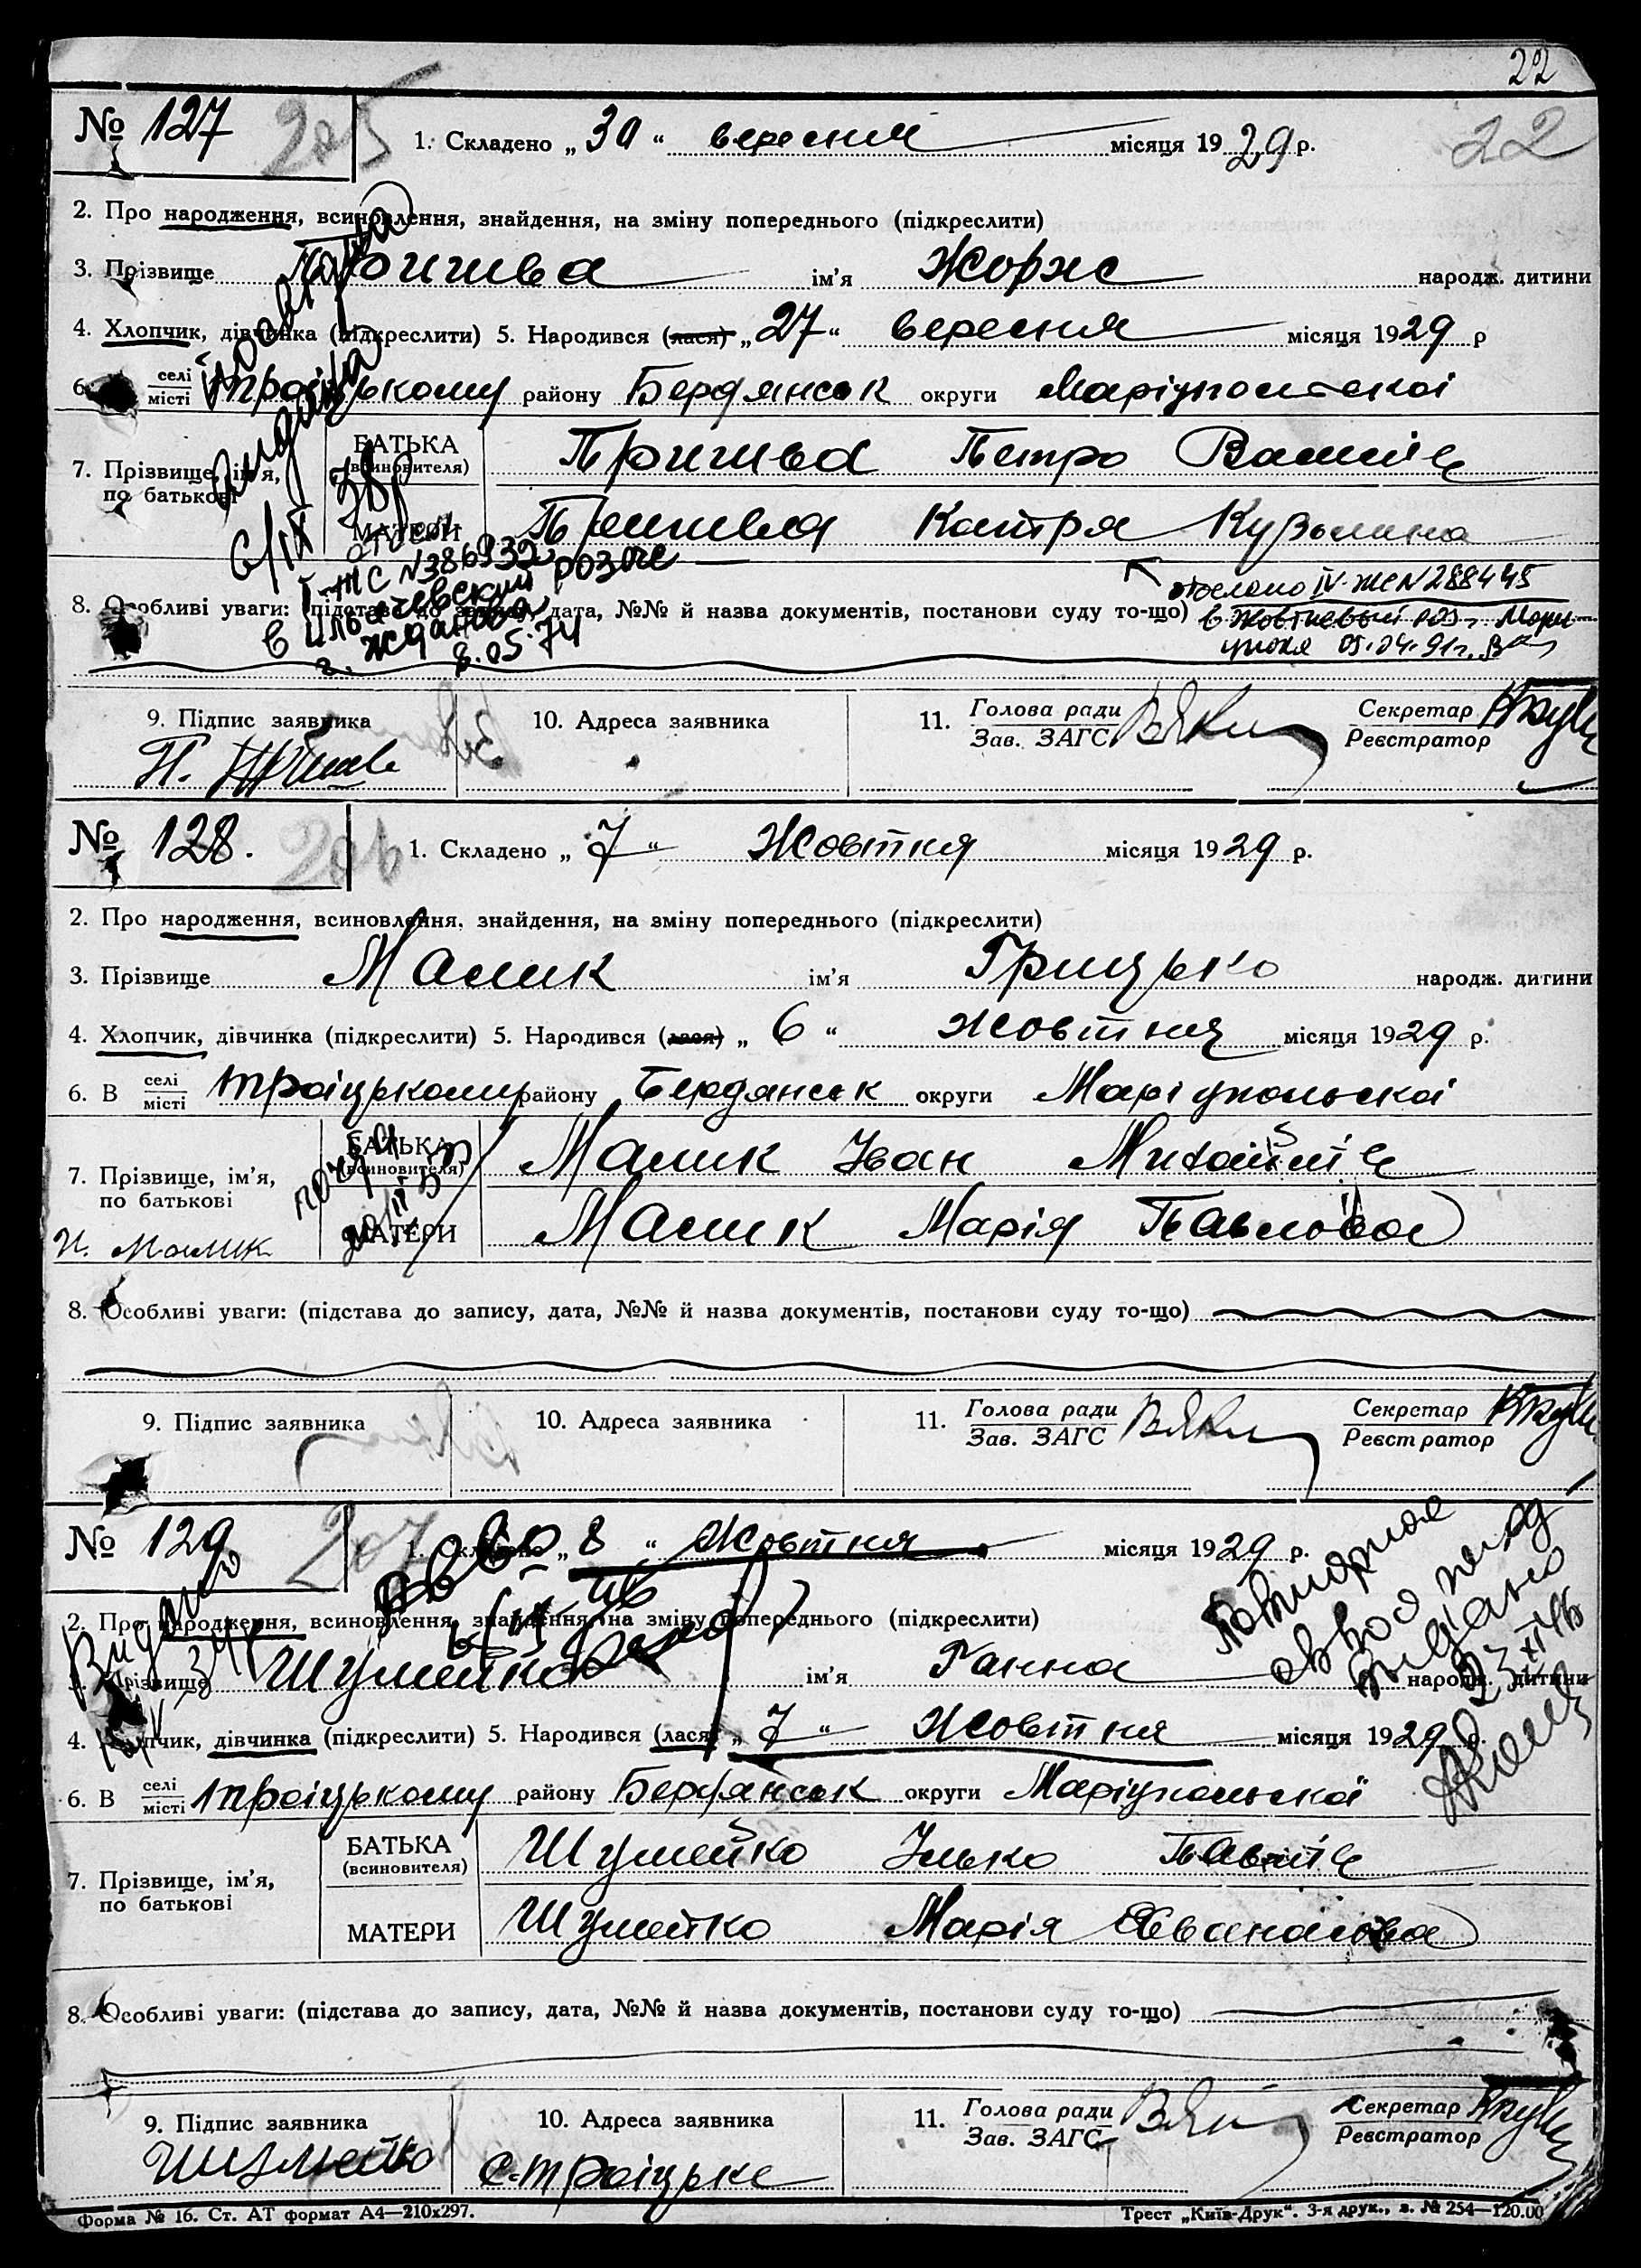 22
№ 127 205 1. Складено „ 30 “ вересня місяця 19 29 р. 22
2. Про народження, всиновлення, знайдення, на зміну попереднього (підкреслити)
3. Прізвище ім'я Жорж народж. дитини
4. Хлопчик, дівчинка (підкреслити) 5. Народився (лася) „ 27 “ вересня місяця 19 29 р
6. селі місті Троіцькому району Бердянськ округи Маріупольскоі
7. Прізвище, ім'я, по батькові
БАТЬКА (всиновителя) Петро
МАТЕРИ Катря Кузьмина
6/IX 38р
І-ЖС N386932
в Ильичевский розаге
г. Жданова
8.05.74
отослано IV-ЖС N288445
8. Особливі уваги: (підстава до запису, дата, №№ й назва документів, постанови суду то-що) в Жовтневый Мари-
уполя 05.04.91г.
9. Підпис заявника 10. Адреса заявника 11. Голова ради Зав. ЗАГС Секретар Реєстратор
№ 128. 206 1. Складено „ 7 “ Жовтня місяця 19 29 р.
2. Про народження, всиновлення, знайдення, на зміну попереднього (підкреслити)
3. Прізвище Малик ім'я Грицько народж. дитини
4. Хлопчик, дівчинка (підкреслити) 5. Народився (лася) „ 6 “ жовтня місяця 19 29 р.
6. В селі місті Троіцькому району Бердянськ округи Маріупольскоі
7. Прізвище, ім'я, по батькові
БАТЬКА (всиновителя) Малик Іван Михайлів
МАТЕРИ Малик Марія Павлова
И. Малик
8. Особливі уваги: (підстава до запису, дата, №№ й назва документів, постанови суду то-що)
9. Підпис заявника 10. Адреса заявника 11. Голова ради Зав. ЗАГС Секретар Реєстратор
№ 129 207 1. Складено „ 8 “ Жовтня місяця 19 29 р.
2. Про народження, всиновлення, знайдення, на зміну попереднього (підкреслити)
3. Прізвище Шумейко ім'я Ганна народж. дитини
Видано
Повторное
св во о рожд
выдано
23/XI 46
4. Хлопчик, дівчинка (підкреслити) 5. Народився (лася) „ 7 “ жовтня місяця 19 29 р.
6. В селі місті Троіцькому району Бердянськ округи Маріупольскоі
7. Прізвище, ім'я, по батькові
БАТЬКА (всиновителя) Шумейко Ілько Павлів
МАТЕРИ Шумейко Марія
8. Особливі уваги: (підстава до запису, дата, №№ й назва документів, постанови суду то-що)
9. Підпис заявника Шумейко 10. Адреса заявника с. Троіцьке 11. Голова ради Зав. ЗАГС Секретар Реєстратор
Форма № 16. Ст. АТ формат А4—210х297. Трест „Київ-Друк“. 3-я друк., з. № 254—120.00